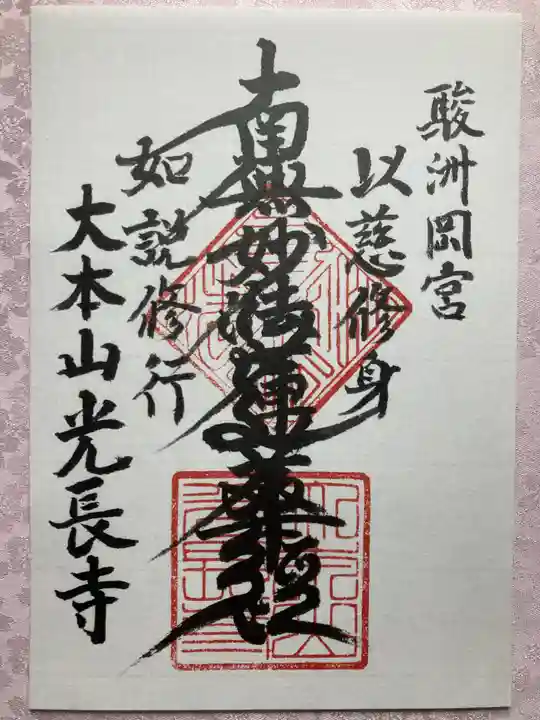 駿洲岡宮
以慈修身
南無妙法蓮華經
如説修行
大本山光長寺